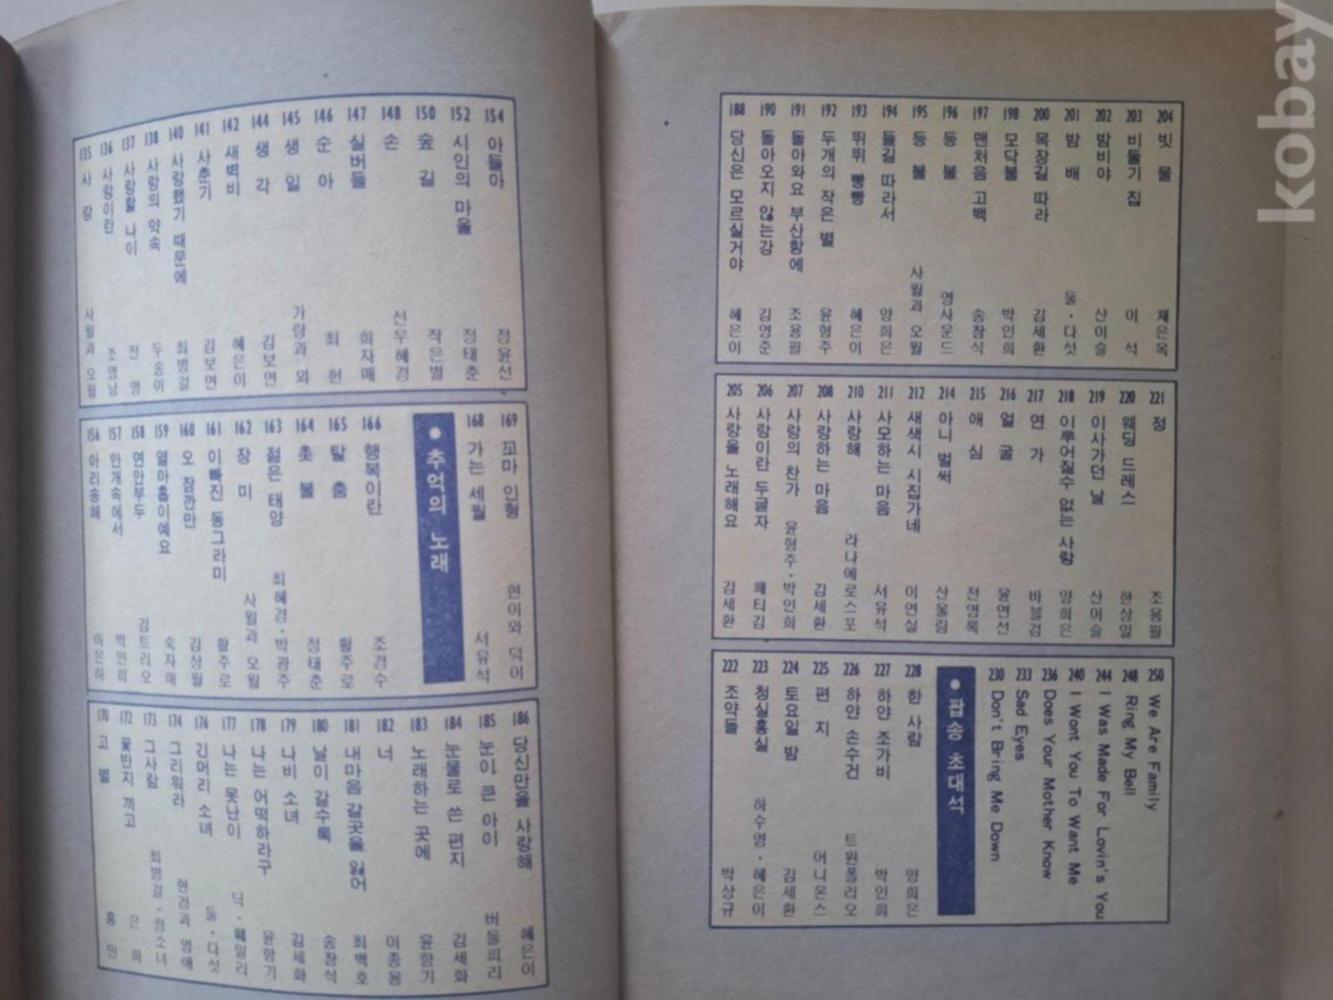 135 사랑 사월과 오월
136 사랑이란 조영남
137 사랑할 나이 전영
138 사랑의 약속 두송이
140 사랑했기 때문에 최병걸
141 사춘기 김보연
142 새벽비 혜은이
144 생각 김보연
145 생일 가람과 뫼
146 순아 최헌
147 실버들 희자매
148 손 선우혜경
150 숲길 작은별
152 시인의 마을 정태춘
154 아들아 정윤선
156 아리송해 이은하
157 안개속에서 박인희
158 연안부두 김트리오
159 열아홉이예요 숙자매
160 오 잠깐만 김상월
161 이빠진 동그라미 활주로
162 장미 사월과 오월
163 젊은 태양 최혜경·박광주
164 촛불 정태춘
165 탈춤 활주로
166 행복이란 조경수
● 추억의 노래
168 가는 세월 서유석
169 꼬마 인형 현이와 덕이
170 고별 홍민
172 꽃반지 끼고 은희
173 그사람 최병걸·정소녀
174 그리워라 현경과 영애
176 긴머리 소녀 둘·다섯
177 나는 못난이 딕·훼밀리
178 나는 어떡하라구 윤항기
179 나비 소녀 김세화
180 날이 갈수록 송창식
181 내마음 갈곳을 잃어 최백호
182 너 이종용
183 노래하는 곳에 윤항기
184 눈물로 쓴 편지 김세화
185 눈이 큰 아이 버들피리
186 당신만을 사랑해 혜은이
188 당신은 모르실거야 혜은이
190 돌아오지 않는강 김영준
191 돌아와요 부산항에 조용필
192 두개의 작은 별 윤형주
193 뛰뛰 빵빵 혜은이
194 들길 따라서 양희은
195 등불 사월과 오월
196 등불 영사운드
197 맨처음 고백 송창식
198 모닥불 박인희
200 목장길 따라 김세환
201 밤배 둘·다섯
202 밤비야 산이슬
203 비둘기 집 이석
204 빗물 채은옥
205 사랑을 노래해요 김세환
206 사랑이란 두글자 패티김
207 사랑의 찬가 윤형주·박인희
208 사랑하는 마음 김세환
210 사랑해 라나에로스포
211 사모하는 마음 서유석
212 새색시 시집가네 이연실
214 아니 벌써 산울림
215 애심 전영록
216 얼굴 윤연선
217 연가 바블껌
218 이루어질수 없는 사랑 양희은
219 이사가던 날 산이슬
220 웨딩 드레스 한상일
221 정 조용필
222 조약돌 박상규
223 청실홍실 하수영·혜은이
224 토요일 밤 김세환
225 편지 어니온스
226 하얀 손수건 트윈폴리오
227 하얀 조가비 박인희
228 한 사람 양희은
● 팝송 초대석
230 Don't Bring Me Down
233 Sad Eyes
236 Does Your Mother Know
240 I Wont You To Want Me
244 I Was Made For Lovin's You
248 Ring My Bell
250 We Are Family
kobay